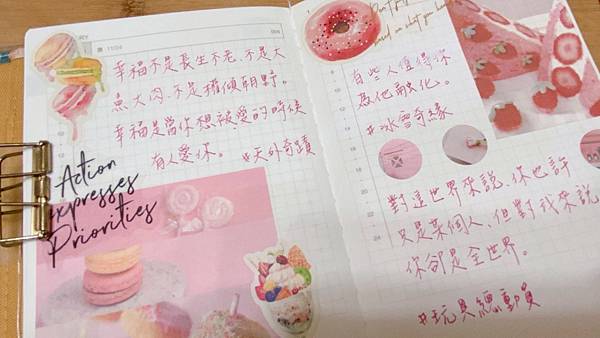 11/04
幸福不是長生不老、不是大
魚大肉、不是權傾朝野。
幸福是當你想被愛的時候
有人愛你。#天外奇蹟
Action
expresses
Priorities
有些人值得你
為他融化。
#冰雪奇緣
對這世界來說、你也許
只是某個人、但對我來說
你卻是全世界。
#玩具總動員